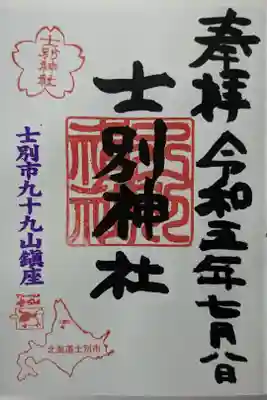 奉拝 令和五年七月八日
士別神社
士別神社
士別神社
士別市九十九山鎮座
北海道士別市